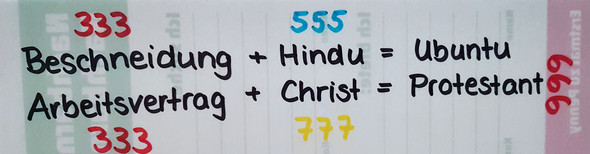 333 555
Beschneidung + Hindu = Ubuntu
Arbeitsvertrag + Christ = Protestant
666
333 777